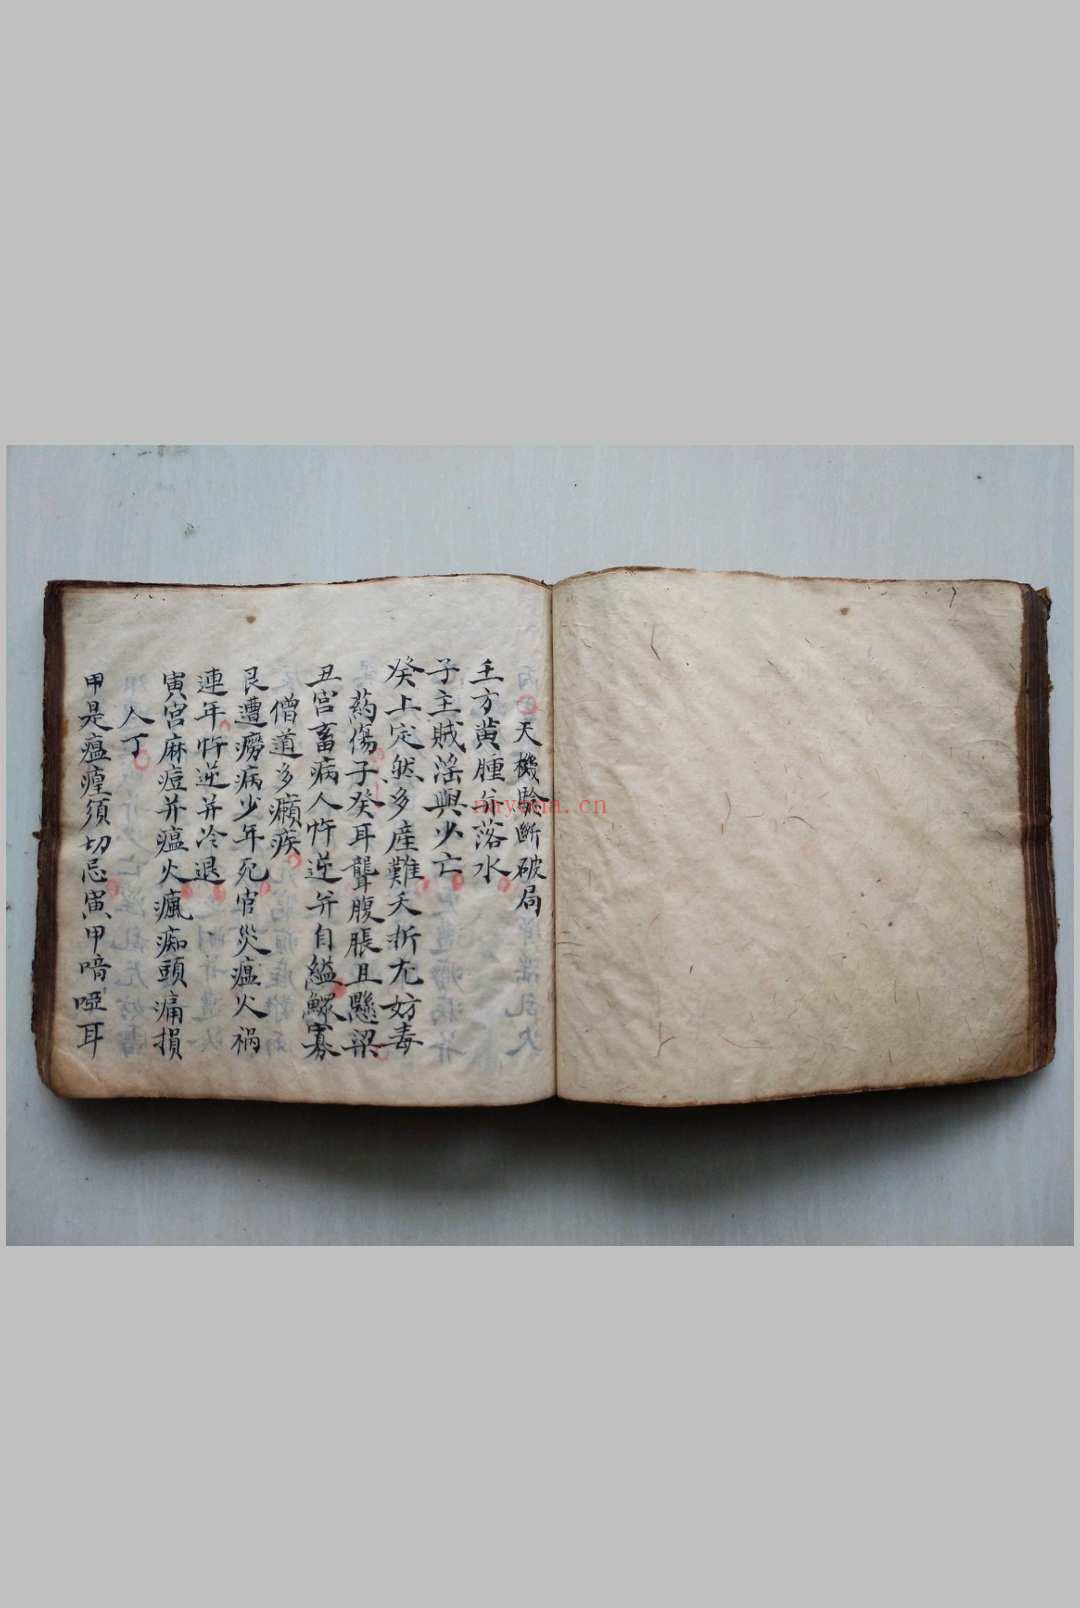 天機驗斷破局
壬方黄腫并落水
子主賊淫與少亡
癸上定然多産難夭折尤妨毒
葯傷子癸耳聾腹脹且懸梁
丑宫畜病人忤逆并自縊鰥寡
僧道多癩疾
艮遭癆病少年死官災瘟火禍
連年忤逆并冷退
寅宫麻痘并瘟火瘋痴頭痛損
人丁
甲是瘟㾮須切忌寅甲喑啞耳
nayona.cn